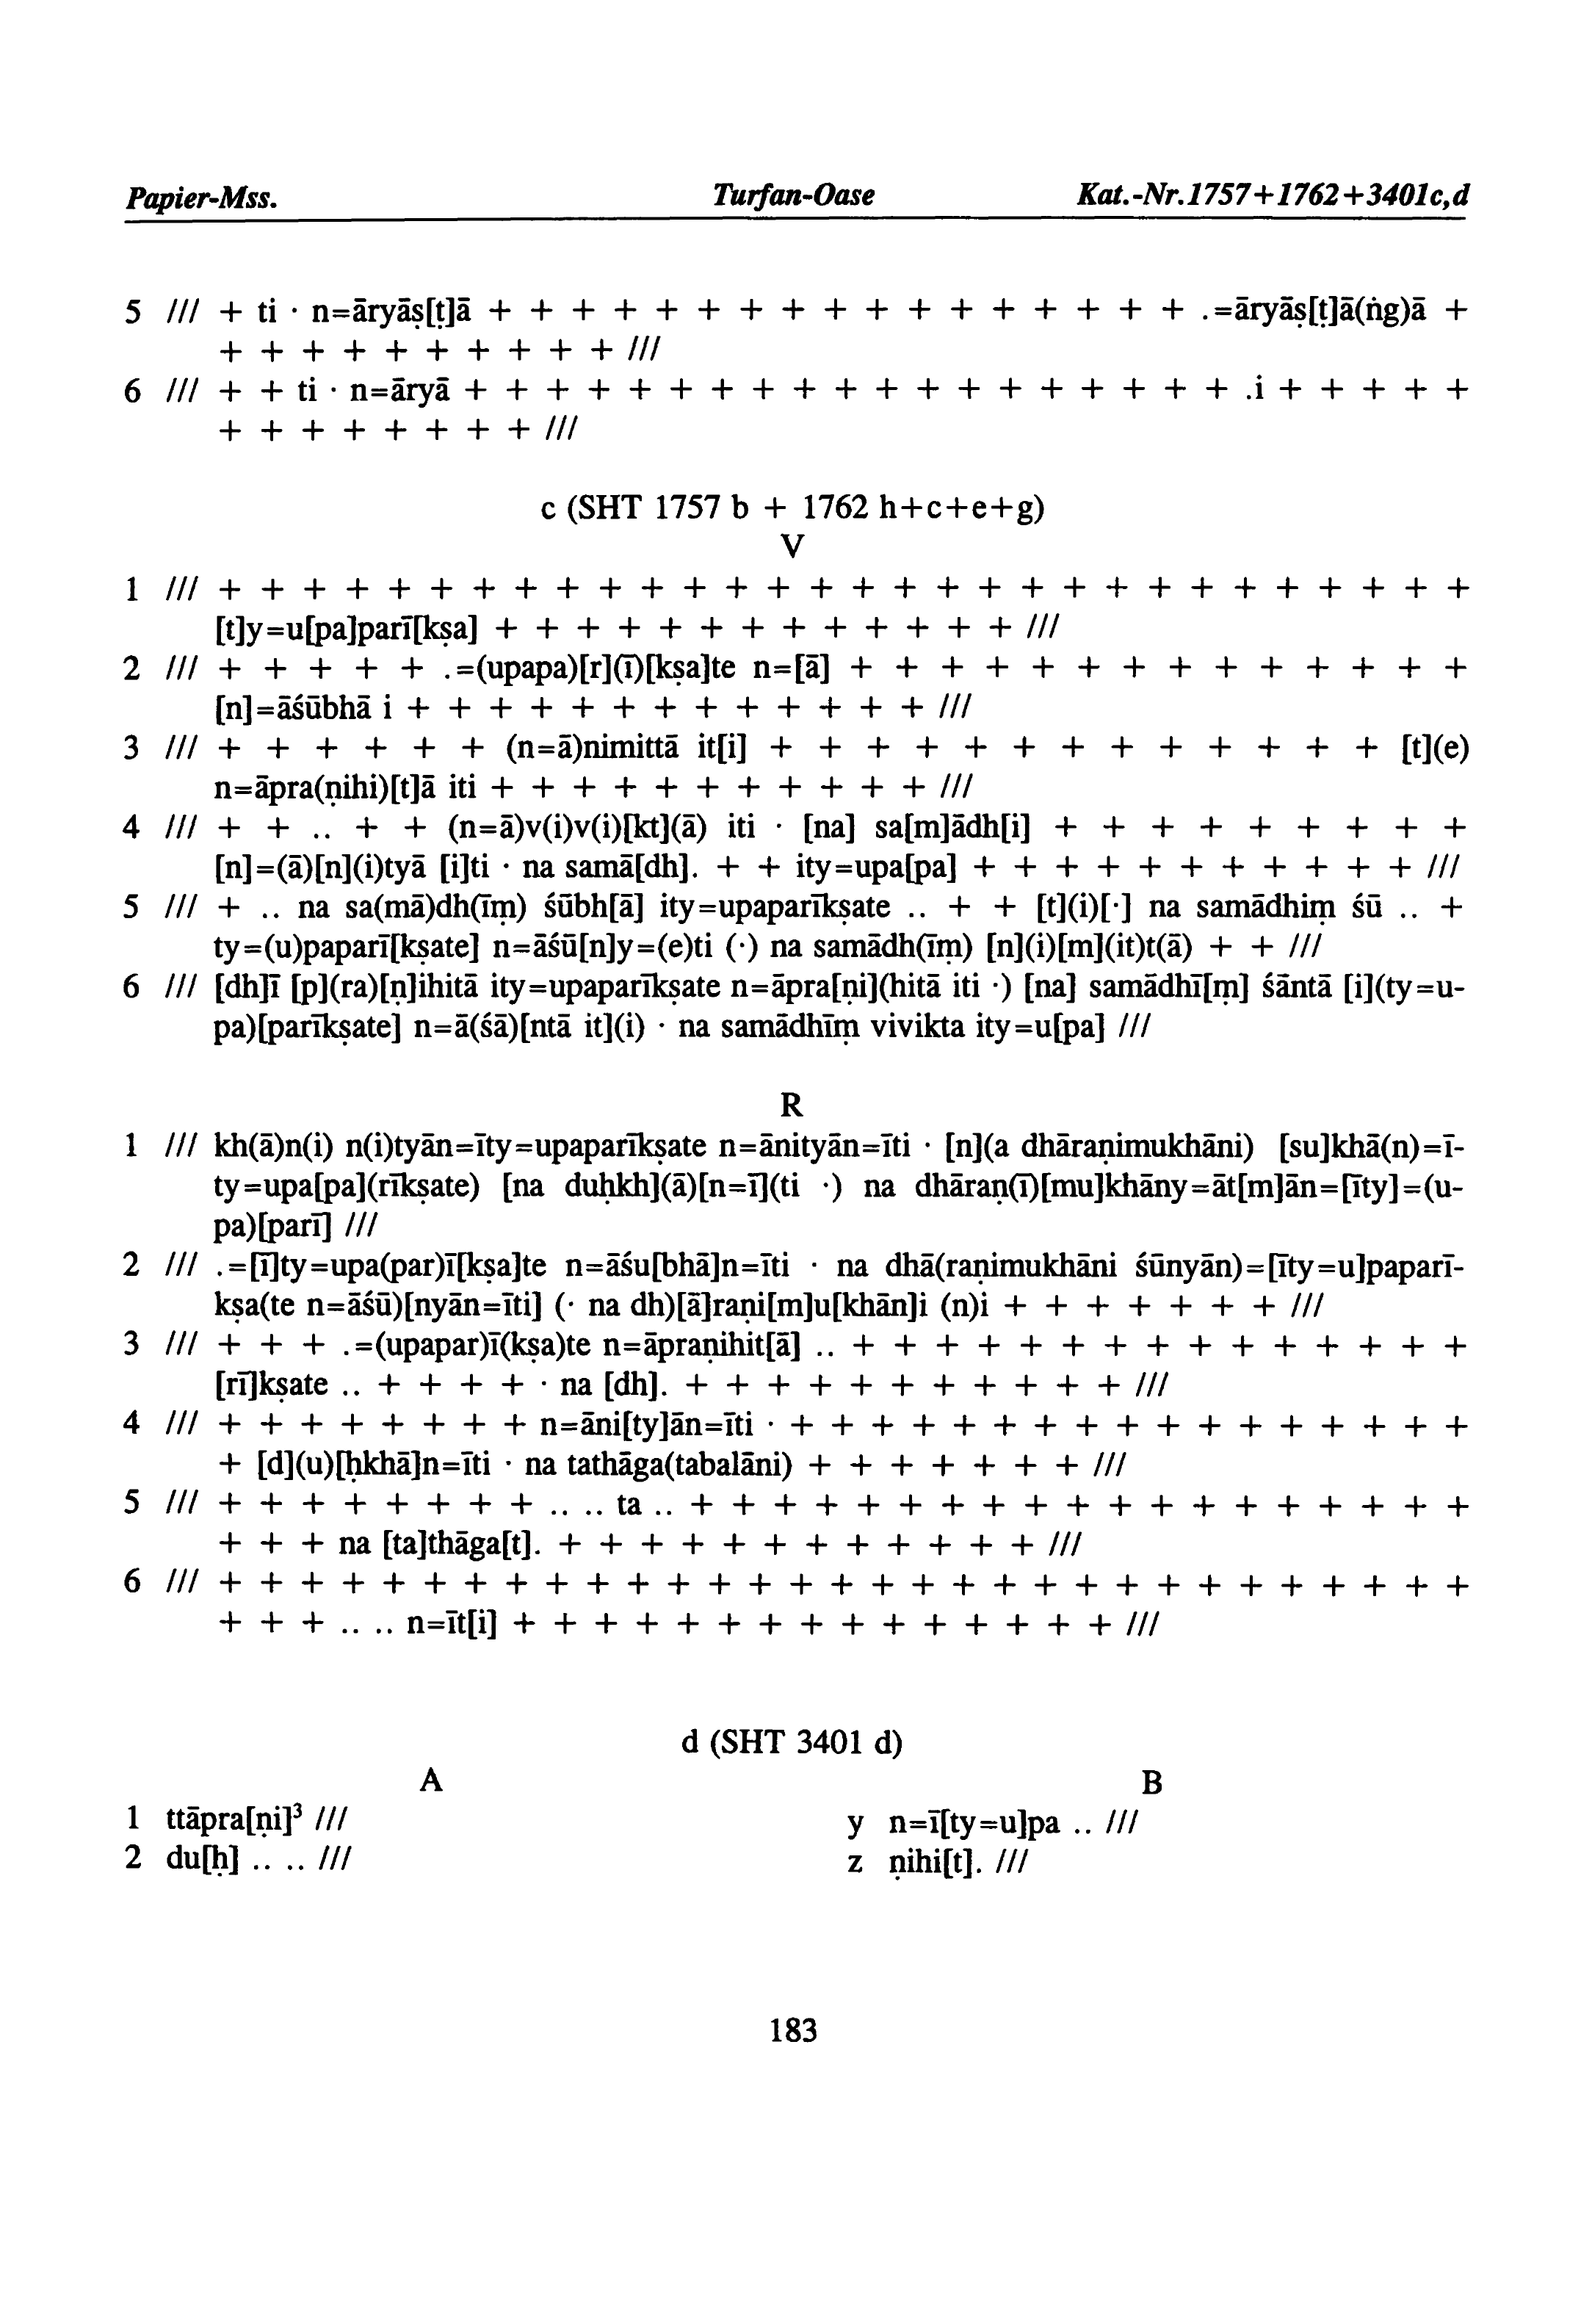 Papier-Mss. Turfan-Oase Kat.-Nr.1757+1762+3401c,d
5 /// + ti · n=āryāṣ[ṭ]ā + + + + + + + + + + + + + + + + + .=āryāṣ[ṭ]ā(ṅg)ā +
+ + + + + + + + + + ///
6 /// + + ti · n=āryā + + + + + + + + + + + + + + + + + + + .i + + + + +
+ + + + + + + + ///
c (SHT 1757 b + 1762 h+c+e+g)
V
1 /// + + + + + + + + + + + + + + + + + + + + + + + + + + + + + +
[t]y=u[pa]parī[kṣa] + + + + + + + + + + + + + ///
2 /// + + + + + .=(upapa)[r](ī)[kṣa]te n=[ā] + + + + + + + + + + + + + +
[n]=āśūbhā i + + + + + + + + + + + + + ///
3 /// + + + + + + (n=ā)nimittā it[i] + + + + + + + + + + + + + [t](e)
n=āpra(ṇihi)[t]ā iti + + + + + + + + + + + ///
4 /// + + .. + + (n=ā)v(i)v(i)[kt](ā) iti · [na] sa[m]ādh[i] + + + + + + + + +
[n]=(ā)[n](i)tyā [i]ti · na samā[dh]. + + ity=upa[pa] + + + + + + + + + + + ///
5 /// + .. na sa(mā)dh(īṃ) śūbh[ā] ity=upaparīkṣate .. + + [t](i)[·] na samādhiṃ śū .. +
ty=(u)paparī[kṣate] n=āśū[n]y=(e)ti (·) na samādh(īṃ) [n](i)[m](it)t(ā) + + ///
6 /// [dh]ī [p](ra)[ṇ]ihitā ity=upaparīkṣate n=āpra[ṇi](hitā iti ·) [na] samādhī[ṃ] śāntā [i](ty=u-
pa)[parīkṣate] n=ā(śā)[ntā it](i) · na samādhīṃ vivikta ity=u[pa] ///
R
1 /// kh(ā)n(i) n(i)tyān=īty=upaparīkṣate n=ānityān=īti · [n](a dhāraṇimukhāni) [su]khā(n)=ī-
ty=upa[pa](rīkṣate) [na duḥkh](ā)[n=ī](ti ·) na dhāraṇ(ī)[mu]khāny=āt[m]ān=[īty]=(u-
pa)[parī] ///
2 /// .=[ī]ty=upa(par)ī[kṣa]te n=āśu[bhā]n=īti · na dhā(raṇimukhāni śūnyān)=[īty=u]paparī-
kṣa(te n=āśū)[nyān=īti] (· na dh)[ā]raṇi[m]u[khān]i (n)i + + + + + + + ///
3 /// + + + .=(upapar)ī(kṣa)te n=āpraṇihit[ā] .. + + + + + + + + + + + + + + +
[rī]kṣate .. + + + + · na [dh]. + + + + + + + + + + + ///
4 /// + + + + + + + + n=āni[ty]ān=īti · + + + + + + + + + + + + + + + + +
+ [d](u)[ḥkhā]n=īti · na tathāga(tabalāni) + + + + + + + ///
5 /// + + + + + + + + .. .. ta .. + + + + + + + + + + + + + + + + + + +
+ + + na [ta]thāga[t]. + + + + + + + + + + + + ///
6 /// + + + + + + + + + + + + + + + + + + + + + + + + + + + + + + +
+ + + .. .. n=īt[i] + + + + + + + + + + + + + + + ///
d (SHT 3401 d)
A B
1 ttāpra[ṇi]³ /// y n=ī[ty=u]pa .. ///
2 du[ḥ] .. .. /// z ṇihi[t]. ///
183